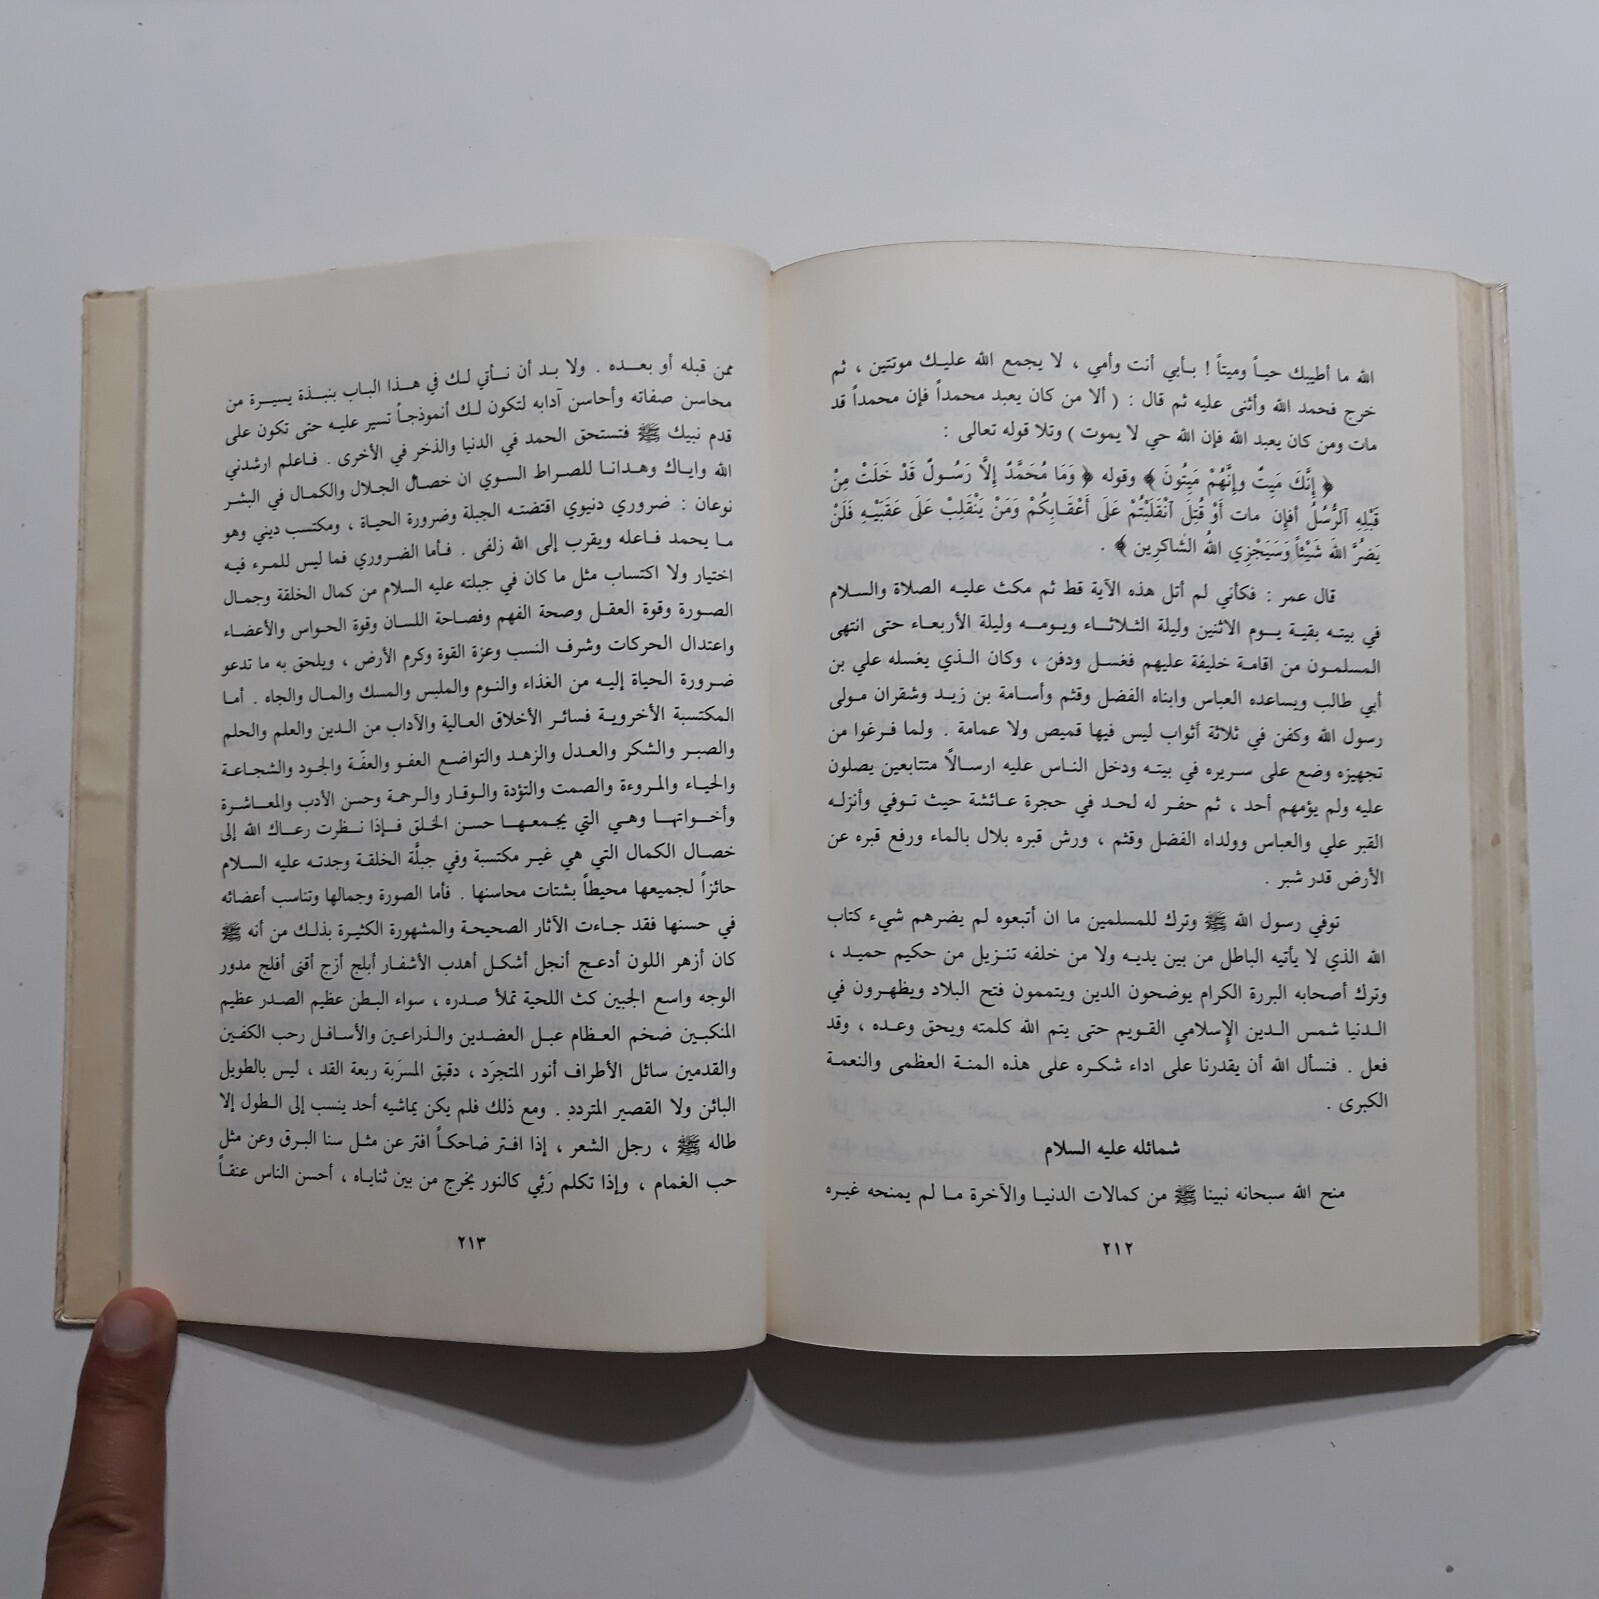 الله ما أطيبك حياً وميتاً ! بأبي أنت وأمي ، لا يجمع الله عليـك موتتين ، ثم
خرج فحمد الله وأثنى عليه ثم قال : ( ألا من كان يعبد محمداً فإن محمداً قد
مات ومن كان يعبد الله فإن الله حي لا يموت ) وتلا قوله تعالى :
﴿ إِنَّكَ مَيِتٌ وإِنَّهُمْ مَيِتُونَ ﴾ وقوله ﴿ وَمَا مُحَمَّدٌ إلَّا رَسُولٌ قَدْ خَلَتْ مِنْ
قَبْلِهِ ٱلرُّسُلُ أفإن مات أَوْ قُتِلَ ٱنْقَلَبْتُمْ عَلَى أَعْقَابِكُمْ وَمَنْ يَنْقَلِبْ عَلَى عَقَبَيْهِ فَلَنْ
يَضُرَّ اللهَ شَيْئاً وَسَيَجْزِي اللهُ الشَاكِرِين ﴾ .
قال عمر : فكأني لم أتل هذه الآية قط ثم مكث عليه الصلاة والسلام
في بيته بقية يوم الاثنين وليلة الثلاثاء ويومه وليلة الأربعاء حتى انتهى
المسلمون من اقامة خليفة عليهم فغسل ودفن ، وكان الذي يغسله علي بن
أبي طالب ويساعده العباس وابناه الفضل وقثم وأسامة بن زيد وشقران مولى
رسول الله وكفن في ثلاثة أثواب ليس فيها قميص ولا عمامة . ولما فرغوا من
تجهيزه وضع على سريره في بيته ودخل الناس عليه ارسالاً متتابعين يصلون
عليه ولم يؤمهم أحد ، ثم حفر له لحد في حجرة عائشة حيث توفي وأنزله
القبر علي والعباس وولداه الفضل وقثم ، ورش قبره بلال بالماء ورفع قبره عن
الأرض قدر شبر .
توفي رسول الله ﷺ وترك للمسلمين ما ان أتبعوه لم يضرهم شيء كتاب
الله الذي لا يأتيه الباطل من بين يديه ولا من خلفه تنزيل من حكيم حميد ،
وترك أصحابه البررة الكرام يوضحون الدين ويتممون فتح البلاد ويظهرون في
الدنيا شمس الدين الإسلامي القويم حتى يتم الله كلمته ويحق وعده ، وقد
فعل . فنسأل الله أن يقدرنا على اداء شكره على هذه المنة العظمى والنعمة
الكبرى .
شمائله عليه السلام
منح الله سبحانه نبينا ﷺ من كمالات الدنيا والآخرة ما لم يمنحه غيره
٢١٢
ممن قبله أو بعده . ولا بد أن نأتي لك في هذا الباب بنبذة يسيرة من
محاسن صفاته وأحاسن آدابه لتكون لك أنموذجاً تسير عليه حتى تكون على
قدم نبيك ﷺ فتستحق الحمد في الدنيا والذخر في الأخرى . فاعلم ارشدني
الله واياك وهدانا للصراط السوي ان خصال الجلال والكمال في البشر
نوعان : ضروري دنيوي اقتضته الجبلة وضرورة الحياة ، ومكتسب ديني وهو
ما يحمد فاعله ويقرب إلى الله زلفى . فأما الضروري فما ليس للمرء فيه
اختيار ولا اكتساب مثل ما كان في جبلته عليه السلام من كمال الخلقة وجمال
الصورة وقوة العقل وصحة الفهم وفصاحة اللسان وقوة الحواس والأعضاء
واعتدال الحركات وشرف النسب وعزة القوة وكرم الأرض ، ويلحق به ما تدعو
ضرورة الحياة إليه من الغذاء والنوم والملبس والمسك والمال والجاه . أما
المكتسبة الأخروية فسائر الأخلاق العالية والآداب من الدين والعلم والحلم
والصبر والشكر والعدل والزهد والتواضع العفو والعفّة والجود والشجاعة
والحياء والمروءة والصمت والتؤدة والوقار والرحمة وحسن الأدب والمعاشرة
وأخواتها وهي التي يجمعها حسن الخلق فإذا نظرت رعاك الله إلى
خصال الكمال التي هي غير مكتسبة وفي جبلَّة الخلقة وجدته عليه السلام
حائزاً لجميعها محيطاً بشتات محاسنها . فأما الصورة وجمالها وتناسب أعضائه
في حسنها فقد جاءت الآثار الصحيحة والمشهورة الكثيرة بذلك من أنه ﷺ
كان أزهر اللون أدعج أنجل أشكل أهدب الأشفار أبلج أزج أقنى أفلج مدور
الوجه واسع الجبين كث اللحية تملأ صدره ، سواء البطن عظيم الصدر عظيم
المنكبين ضخم العظام عبل العضدين والذراعين والأسافل رحب الكفين
والقدمين سائل الأطراف أنور المتجرَد ، دقيق المسرَبة ربعة القد ، ليس بالطويل
البائن ولا القصير المتردد . ومع ذلك فلم يكن يماشيه أحد ينسب إلى الطول إلا
طاله ﷺ ، رجل الشعر ، إذا افتر ضاحكاً افتر عن مثل سنا البرق وعن مثل
حب الغمام ، وإذا تكلم رَئِي كالنور يخرج من بين ثناياه ، أحسن الناس عنقاً
٢١٣